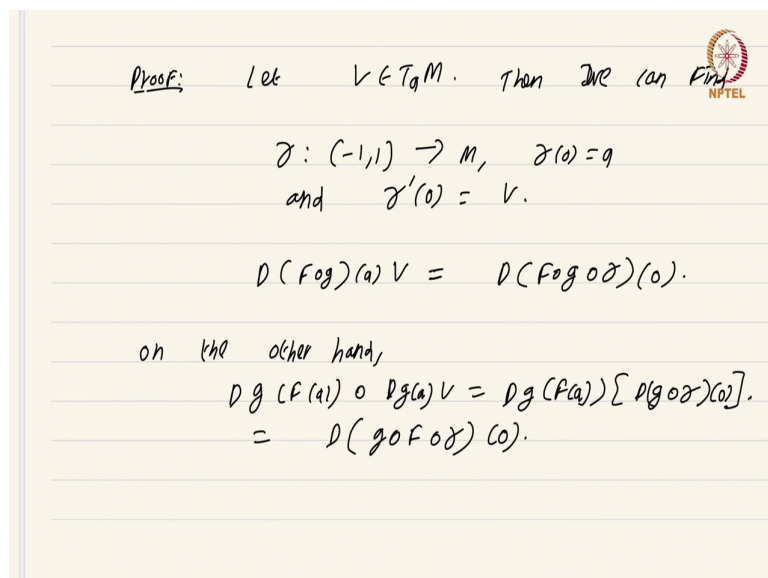 Proof: Let V ∈ TaM. Then we can find
NPTEL
γ : (-1,1) → M, γ(0) = a
and γ'(0) = V.
D(F∘g)(a) V = D(F∘g∘γ)(0).
on the other hand,
Dg(F(a)) ∘ Dg(a) V = Dg(F(a)) [D(g∘γ)(0)].
= D(g∘F∘γ)(0).